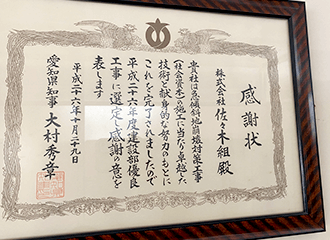 感謝状
株式会社 佐々木組 殿
貴社は急傾斜地崩壊対策工事
(社会資本)の施工に当たり卓越した
技術と献身的な努力のもとに
これを完了されましたので
平成二十六年度建設部優良
工事に選定し感謝の意を
表します
平成二十六年十月二十九日
愛知県知事 大村秀章